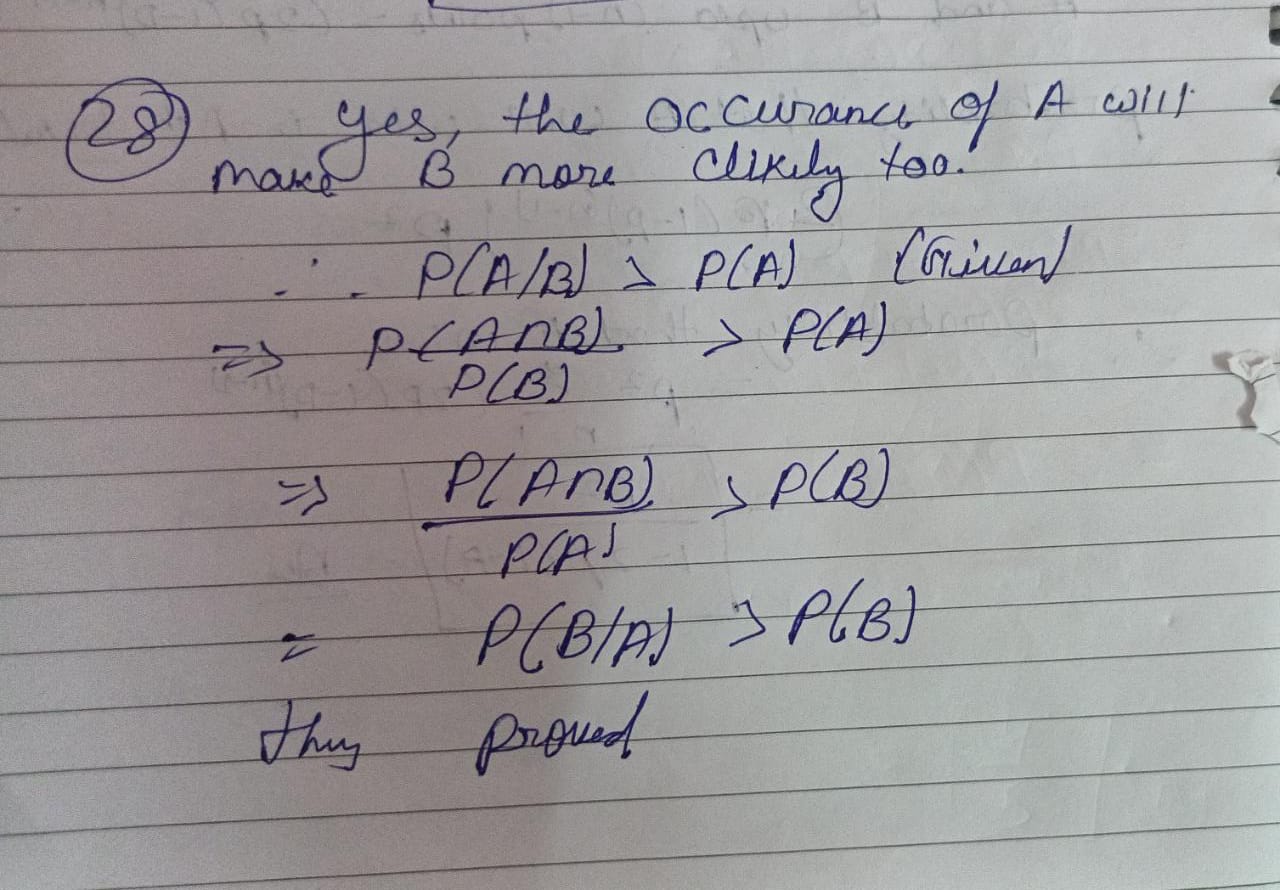 28 yes, the occurance of A will
make B more likely too.
∴ P(A/B) > P(A) (Given)
=> P(A∩B) > P(A)
P(B)
=> P(A∩B) > P(B)
P(A)
= P(B/A) > P(B)
thus proved